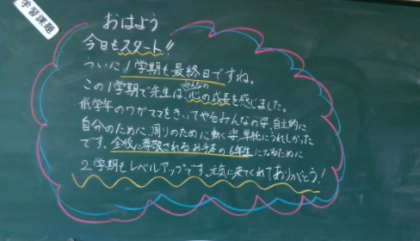 学習課題
おはよう
今日もスタート!!
ついに1学期も最終日ですね。
この1学期で先生は、みんなの心の成長を感じました。
低学年のワガママをきいてやるみんなの姿、自主的に
自分のために、周りのために動く姿、単純にうれしかった
です。全校に尊敬されるお手本の6年生になるために
2学期もレベルアップです。元気に来てくれてありがとう!